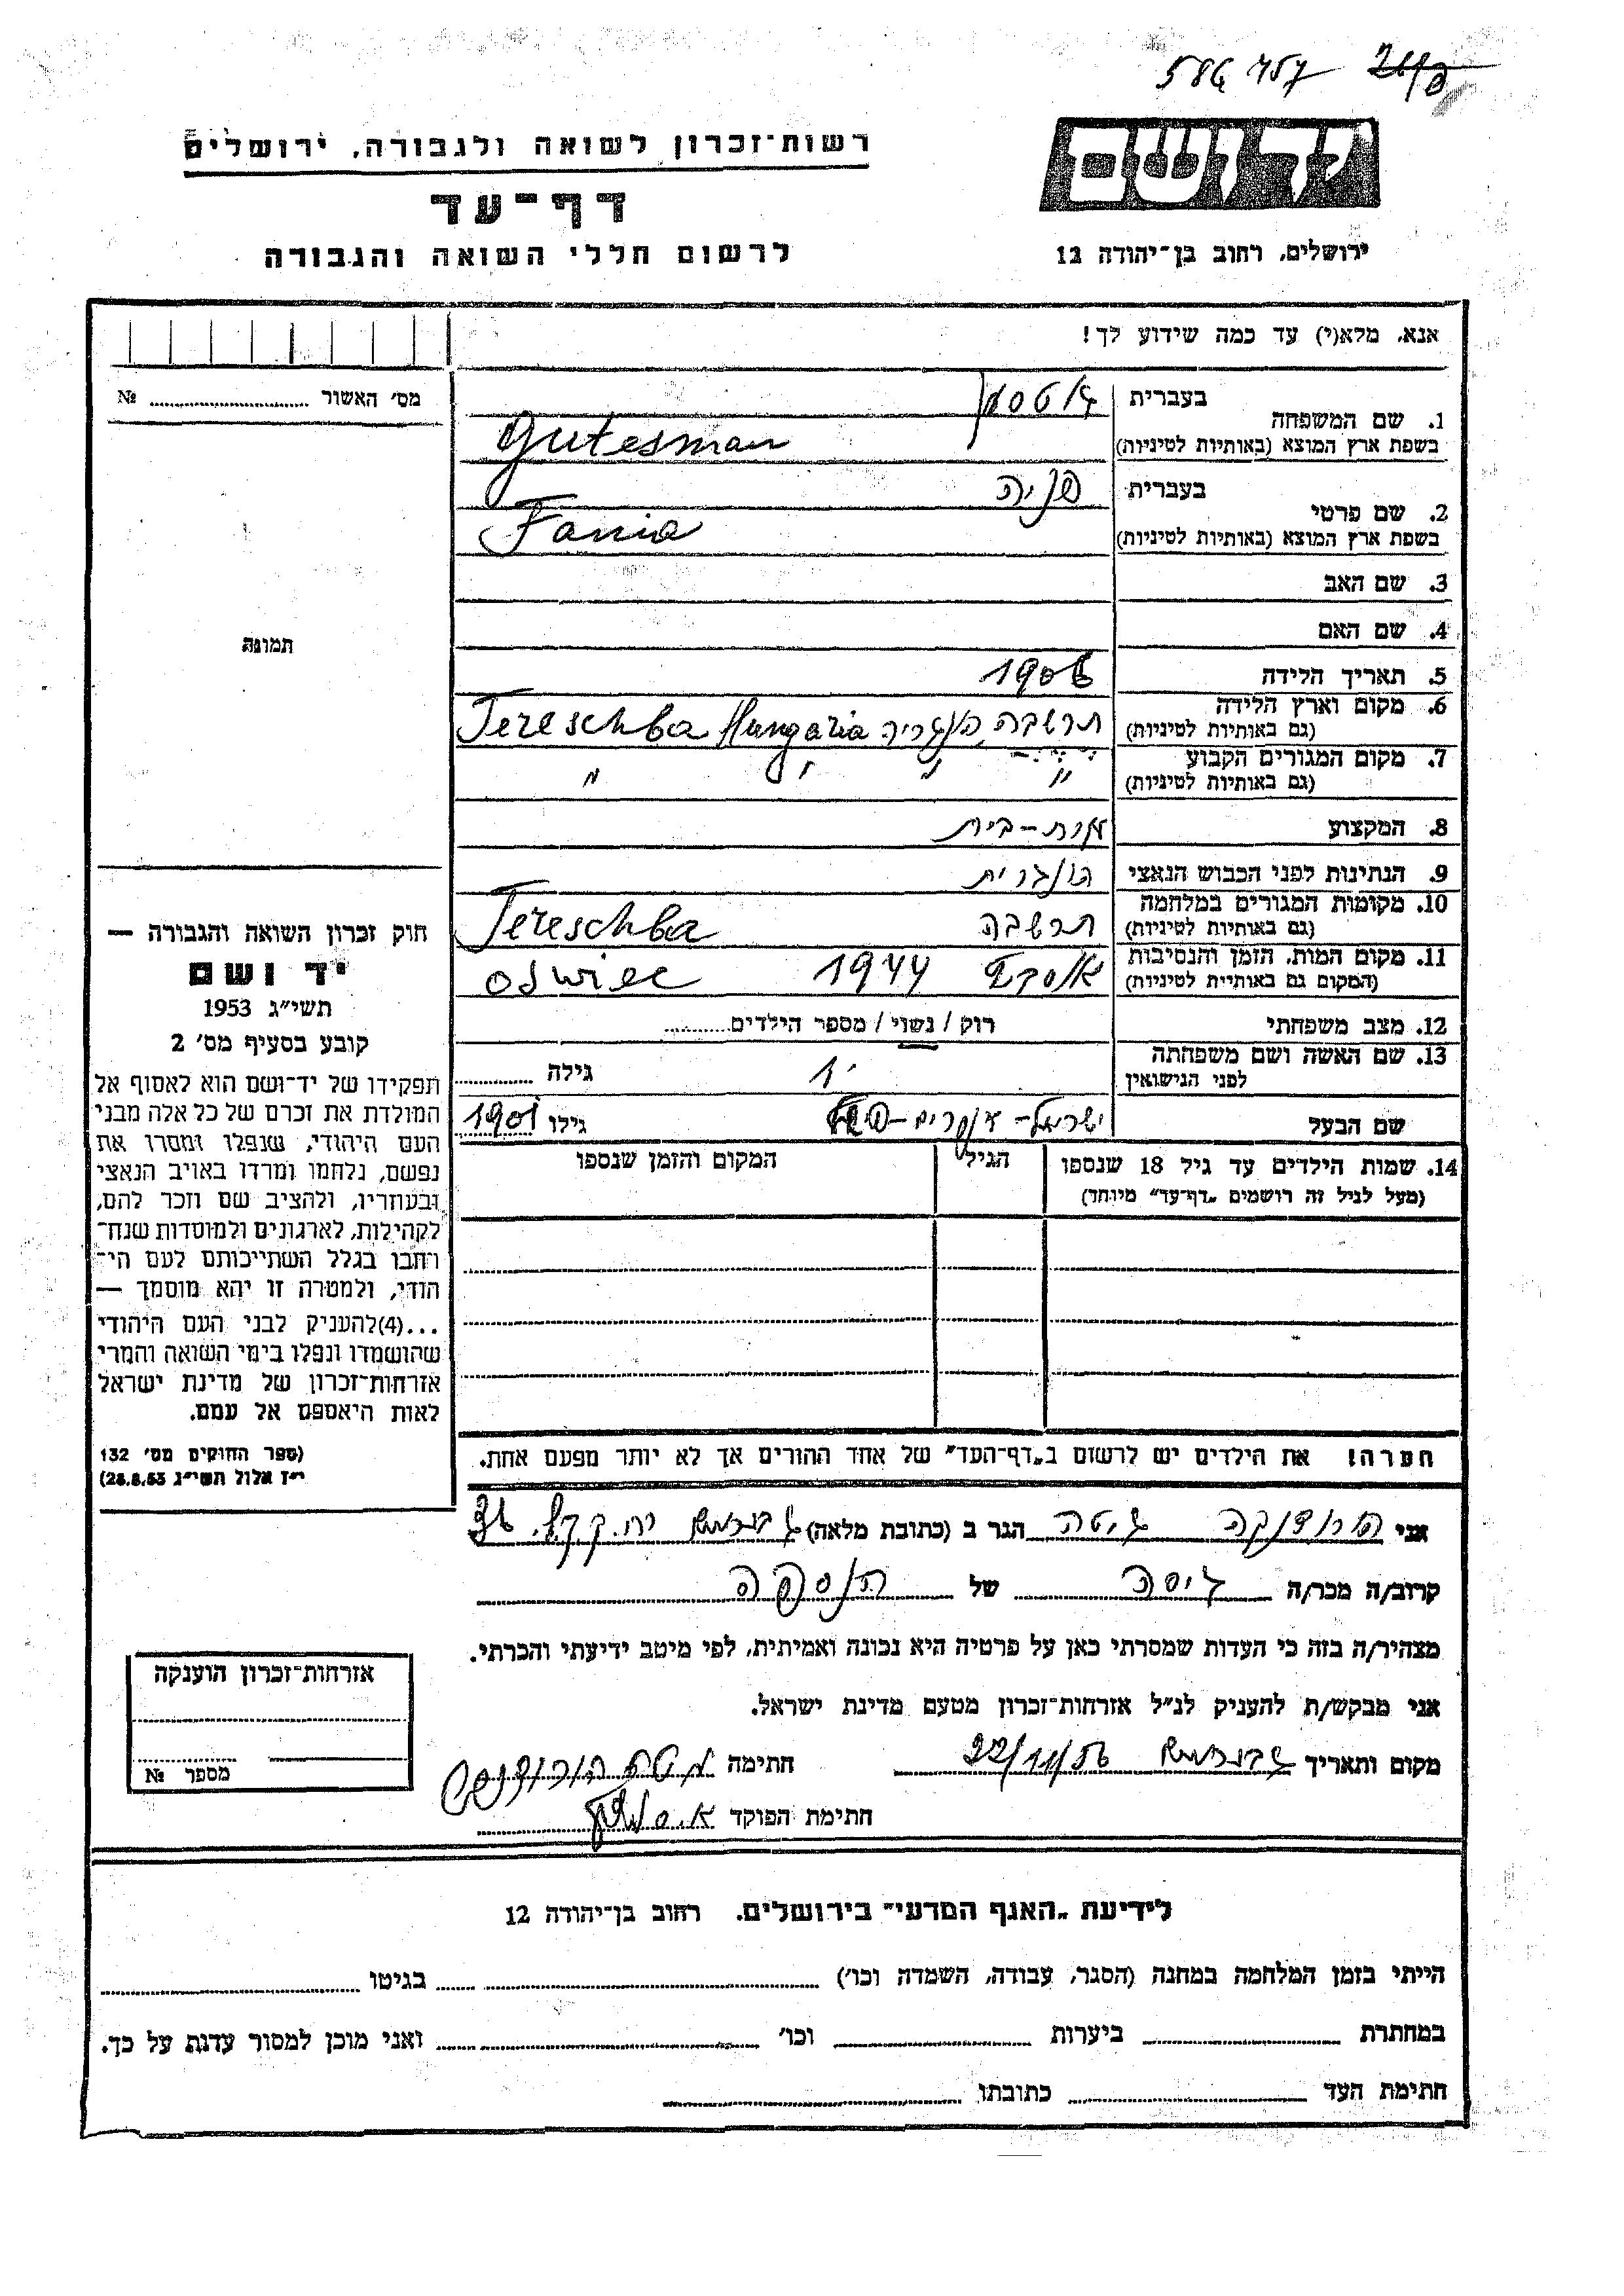 586 757
רשות־זכרון לשואה ולגבורה, ירושלים
דף־עד
לרשום חללי השואה והגבורה
יד ושם
ירושלים, רחוב בן־יהודה 12
אנא, מלא(י) עד כמה שידוע לך!
מס' האשור № 
1. שם המשפחה
בעברית גוטסמן
בשפת ארץ המוצא (באותיות לטיניות) Gutesman
2. שם פרטי
בעברית פניה
בשפת ארץ המוצא (באותיות לטיניות) Fania
3. שם האב
4. שם האם
5. תאריך הלידה 1906
6. מקום וארץ הלידה
(גם באותיות לטיניות) תרשבה הונגריה Tereschba Hungaria
7. מקום המגורים הקבוע
(גם באותיות לטיניות) " " " "
8. המקצוע עקרת-בית
9. הנתינות לפני הכבוש הנאצי הונגרית
10. מקומות המגורים במלחמה
(גם באותיות לטיניות) תרשבה Tereschba
11. מקום המות, הזמן והנסיבות
(המקום גם באותיות לטיניות) 1944 oswiec
12. מצב משפחתי רוק / נשוי / מספר הילדים
13. שם האשה ושם משפחתה
לפני הנישואין גילה
שם הבעל ישראל גילו 1901
14. שמות הילדים עד גיל 18 שנספו
(מעל לגיל זה רושמים „דף־עד" מיוחד)
הגיל
המקום והזמן שנספו
הערה! את הילדים יש לרשום ב„דף־העד" של אחד ההורים אך לא יותר מפעם אחת.
תמונה
חוק זכרון השואה והגבורה —
יד ושם
תשי"ג 1953
קובע בסעיף מס' 2
תפקידו של יד־ושם הוא לאסוף אל
המולדת את זכרם של כל אלה מבני
העם היהודי, שנפלו ומסרו את
נפשם, נלחמו ומרדו באויב הנאצי
ובעוזריו, ולהציב שם וזכר להם,
לקהילות, לארגונים ולמוסדות שנח־
רבו בגלל השתייכותם לעם הי־
הודי, ולמטרה זו יהא מוסמך —
...(4)להעניק לבני העם היהודי
שהושמדו ונפלו בימי השואה והמרי
אזרחות־זכרון של מדינת ישראל
לאות היאספם אל עמם.
(ספר החוקים מס' 132
י"ז אלול תשי"ג 28.8.53)
אני גיטה הגר ב (כתובת מלאה) גבעתיים
קרוב/ה מכר/ה גיסה של הנספה
מצהיר/ה בזה כי העדות שמסרתי כאן על פרטיה היא נכונה ואמיתית, לפי מיטב ידיעתי והכרתי.
אני מבקש/ת להעניק לנ"ל אזרחות־זכרון מטעם מדינת ישראל.
מקום ותאריך גבעתיים 22/11/56 חתימה
חתימת הפוקד
אזרחות־זכרון הוענקה
מספר №
לידיעת „האגף המדעי" בירושלים, רחוב בן־יהודה 12
הייתי בזמן המלחמה במחנה (הסגר, עבודה, השמדה וכו') בגיטו
במחתרת ביערות וכו' ואני מוכן למסור עדות על כך.
חתימת העד כתובתו